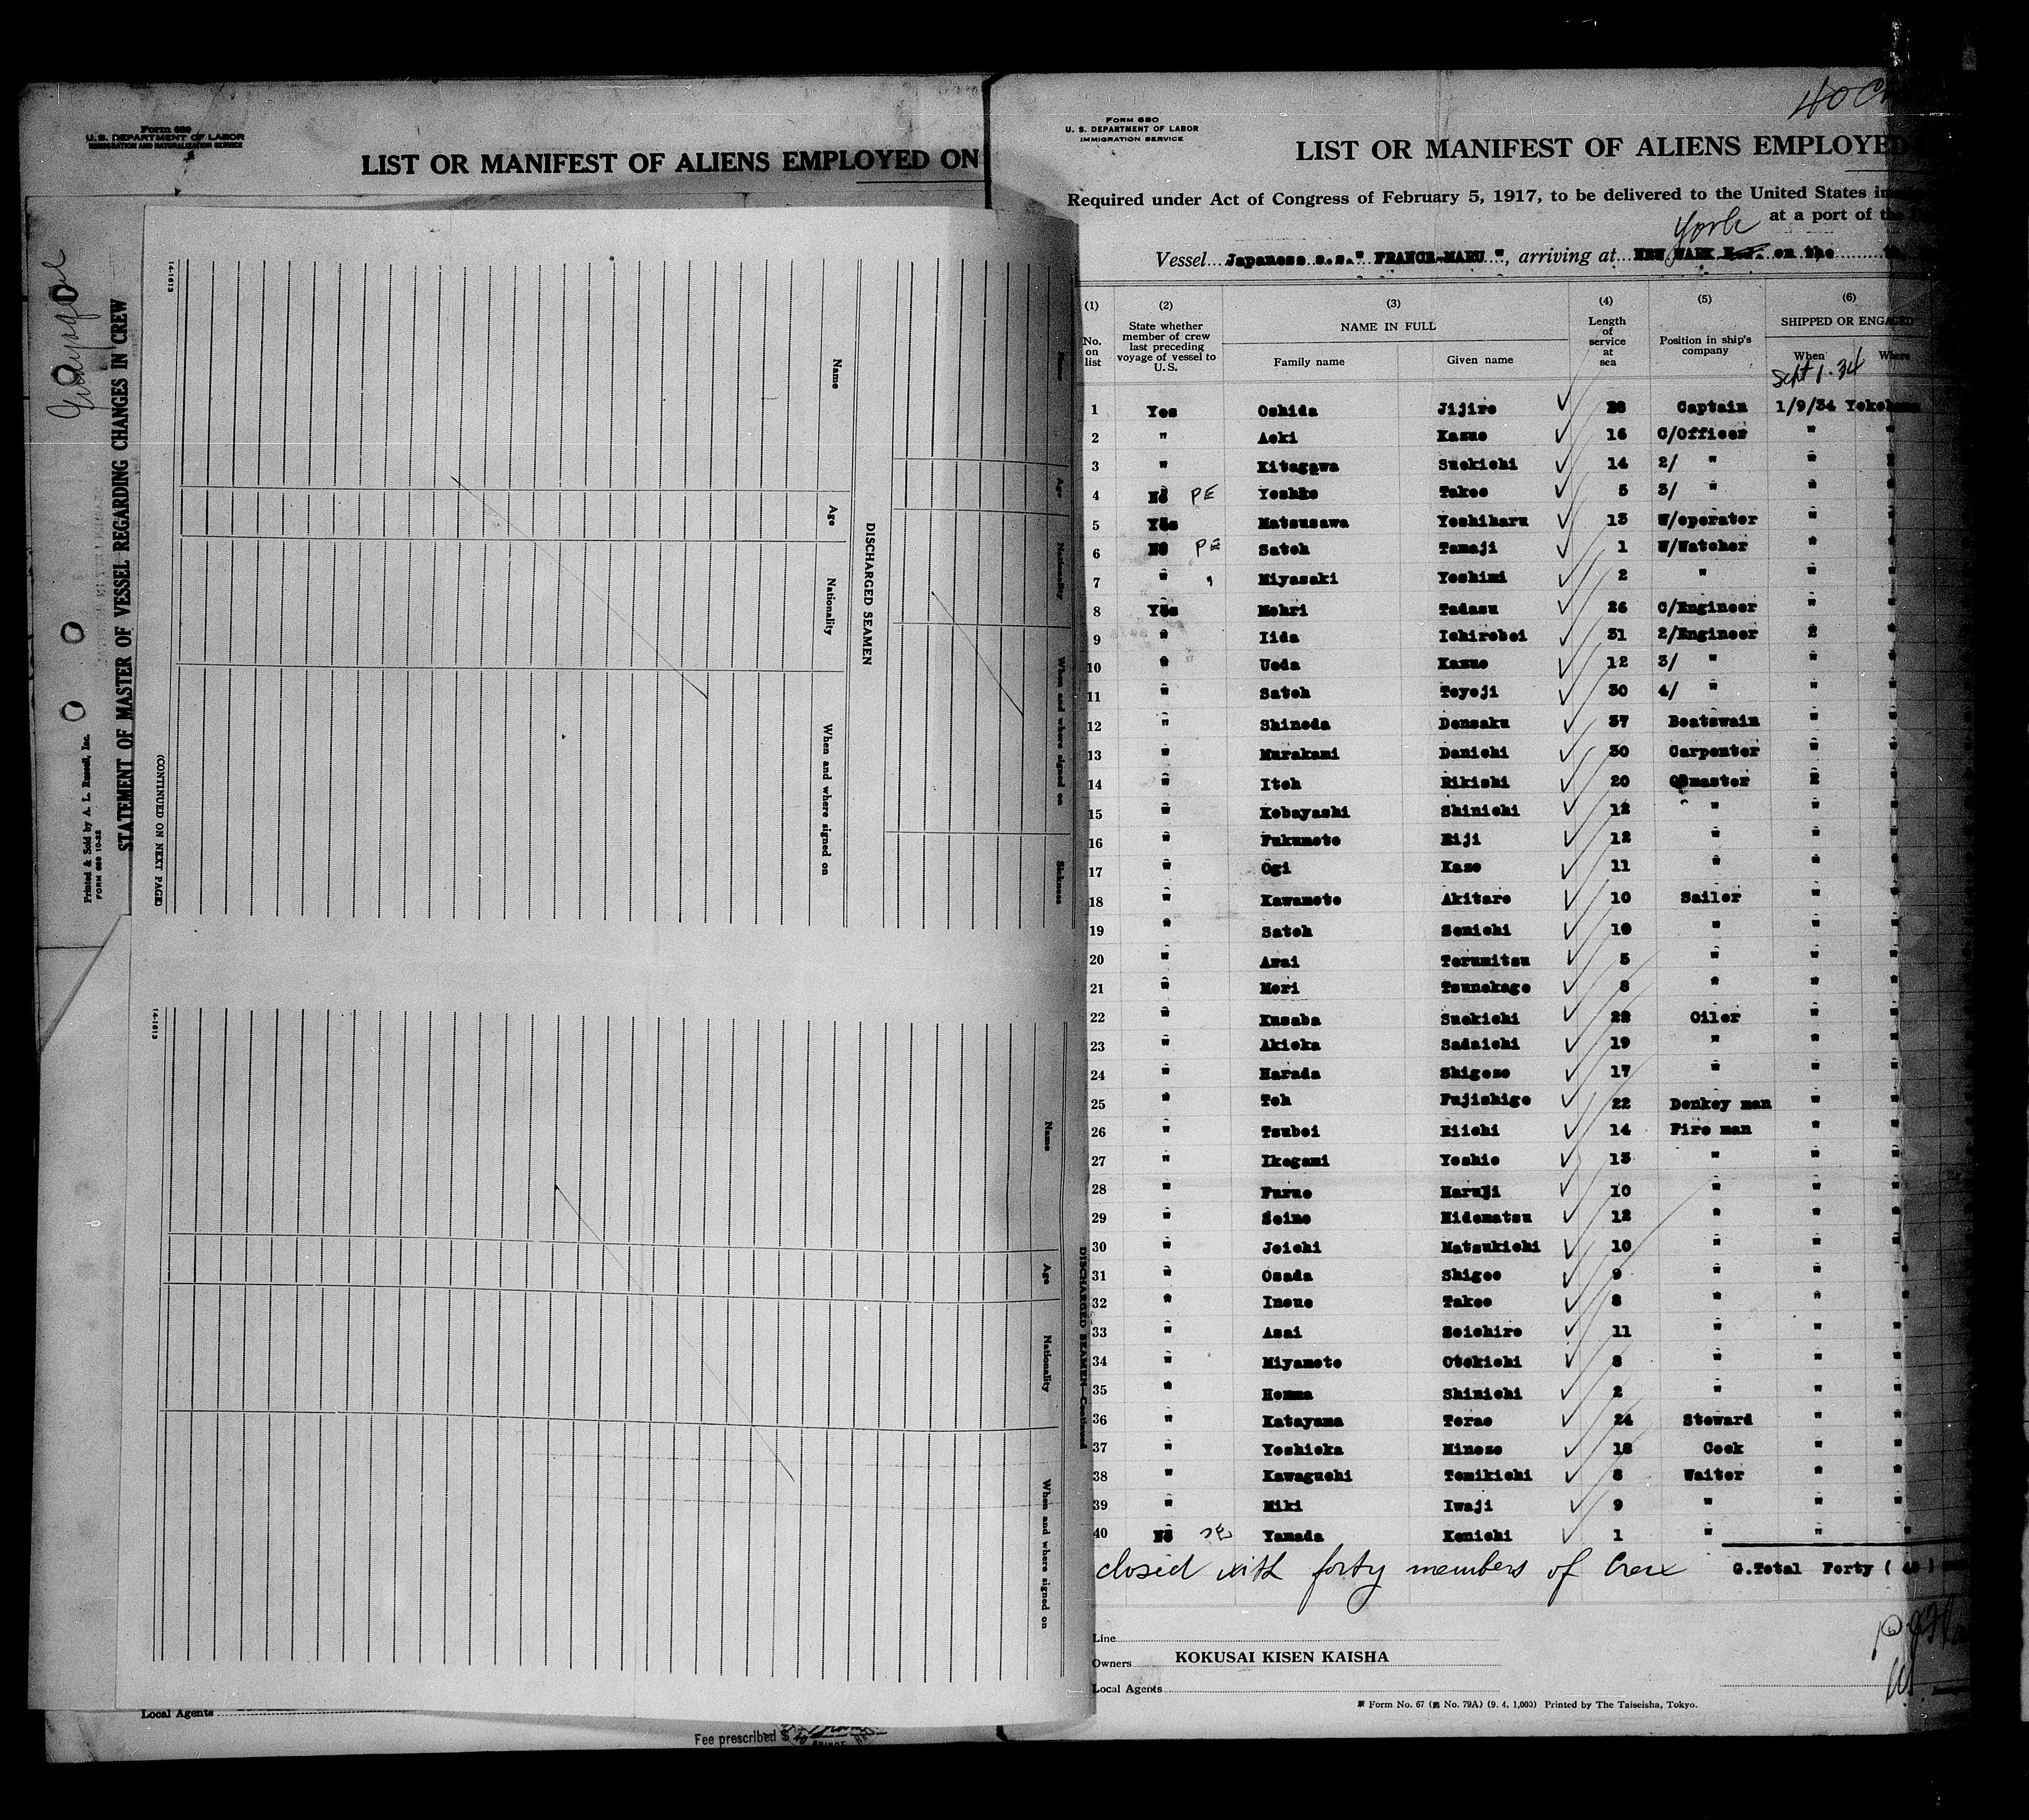 Form 689
U. S. DEPARTMENT OF LABOR
IMMIGRATION AND NATURALIZATION SERVICE
LIST OR MANIFEST OF ALIENS EMPLOYED ON
STATEMENT OF MASTER OF VESSEL REGARDING CHANGES IN CREW
Printed & Sold by A. L. Russell, Inc.
FORM 689 10-32
(CONTINUED ON NEXT PAGE)
14-1613
Name Age Nationality When and where signed on Sickness
DISCHARGED SEAMEN
Name Age Nationality When and where signed on
14-1613
DISCHARGED SEAMEN—Continued
Name Age Nationality When and where signed on
Local Agents
Fee prescribed $
FORM 680
U. S. DEPARTMENT OF LABOR
IMMIGRATION SERVICE
LIST OR MANIFEST OF ALIENS EMPLOYED
Required under Act of Congress of February 5, 1917, to be delivered to the United States
at a port of the
York
Vessel Japanese s.s." FRANCE-MARU ", arriving at NEW WARK on the
(1) (2) (3) (4) (5) (6)
No. on list State whether member of crew last preceding voyage of vessel to U.S. NAME IN FULL Length of service at sea Position in ship's company SHIPPED OR ENGAGED
Family name Given name When Where
Sept 1. 34
1 Yes Oshida Jijiro 28 Captain 1/9/34 Yokohama
2 " Aoki Kazuo 16 C/Officer " "
3 " Kitagawa Suekichi 14 2/ " " "
4 No PE Takeo 5 3/ " " "
5 Yes Matsusawa Yoshiharu 13 W/operator " "
6 No PE Satoh Tamaji 1 W/Watcher " "
7 " " Miyasaki Yoshimi 2 " " "
8 Yes Mohri Tadasu 26 C/Engineer " "
9 " Iida Ichirobei 31 2/Engineer " "
10 " Ueda Kazuo 12 3/ " " "
11 " Satoh Toyoji 30 4/ " " "
12 " Shinoda Densaku 37 Boatswain " "
13 " Murakami Danichi 30 Carpenter " "
14 " Itoh Rikishi 20 Q/master " "
15 " Kobayashi Shinichi 12 " " "
16 " Fukumoto Eiji 12 " " "
17 " Ogi Kazo 11 " " "
18 " Kawamoto Akitaro 10 Sailor " "
19 " Satoh Senichi 10 " " "
20 " Arai Terumitsu 5 " " "
21 " Mori Tsunekage 8 " " "
22 " Kusaba Suekichi 22 Oiler " "
23 " Akioka Sadaichi 19 " " "
24 " Harada Shigezo 17 " " "
25 " Toh Fujishige 22 Donkey man " "
26 " Tsuboi Eiichi 14 Fire man " "
27 " Ikegami Yoshio 13 " " "
28 " Furuo Haruji 10 " " "
29 " Seino Hidematsu 12 " " "
30 " Joichi Matsukichi 10 " " "
31 " Osada Shigeo 9 " " "
32 " Inoue Takeo 8 " " "
33 " Asai Seichiro 11 " " "
34 " Miyamoto Otokichi 8 " " "
35 " Homma Shinichi 2 " " "
36 " Katayama Torao 24 Steward " "
37 " Yoshioka Minezo 18 Cook " "
38 " Kawaguchi Tomikichi 8 Waiter " "
39 " Miki Iwaji 9 " " "
40 No Yamada Kenichi 1 " " "
closed with forty members of Crew G.Total Forty ( 40 )
Line
Owners KOKUSAI KISEN KAISHA
Local Agents
Form No. 67 ( No. 79A) (9. 4. 1,003) Printed by The Taiseisha, Tokyo.